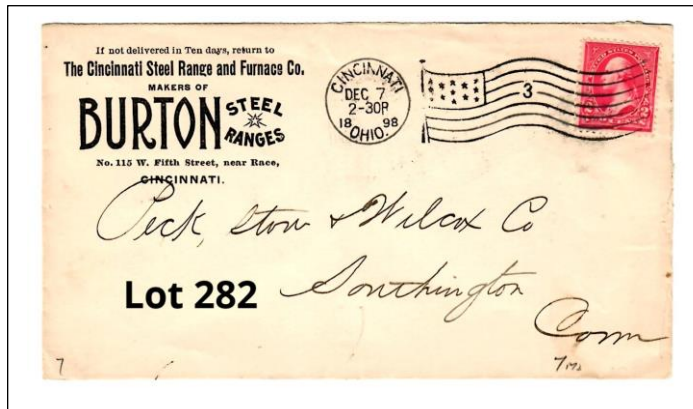 If not delivered in Ten days, return to
The Cincinnati Steel Range and Furnace Co.
MAKERS OF
BURTON STEEL RANGES
No. 115 W. Fifth Street, near Race,
CINCINNATI.
CINCINNATI
DEC 7
2-30P
18 98
OHIO.
3
Peck, Stow & Wilcox Co
Southington
Conn
Lot 282
7
7